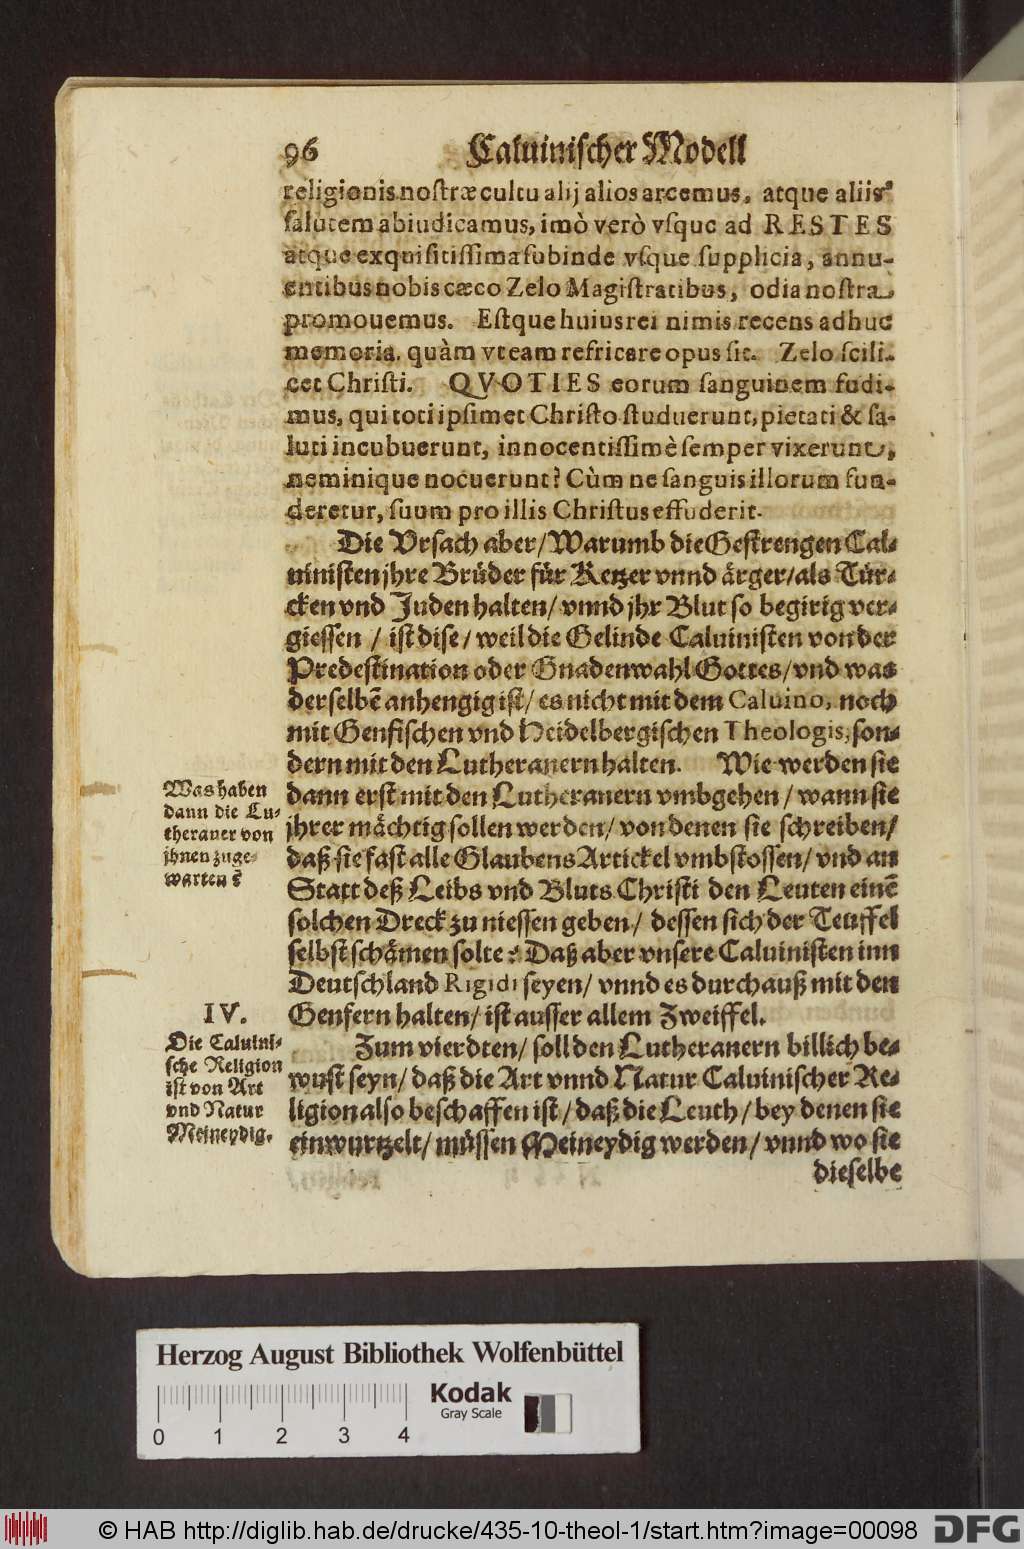 96 Caluinischer Modell
religionis nostræ cultu alij alios arcemus, atque aliis
salutem abiudicamus, imò verò vsque ad RESTES
atque exquisitissima subinde vsque supplicia, annu-
entibus nobis cæco Zelo Magistratibus, odia nostra
promouemus. Estque huius rei nimis recens adhuc
memoria, quàm vt eam refricare opus sit. Zelo scili-
cet Christi. QVOTIES eorum sanguinem fudi-
mus, qui toti ipsimet Christo studuerunt, pietati & sa-
luti incubuerunt, innocentissimè semper vixerunt,
neminique nocuerunt? Cùm ne sanguis illorum fun-
deretur, suum pro illis Christus effuderit.
Die Vrsach aber/ Warumb die Gestrengen Cal-
uinisten jhre Brüder für Ketzer vnnd ärger/ als Tür-
cken vnd Juden halten/ vnnd jhr Blut so begirig ver-
giessen / ist dise/ weil die Gelinde Caluinisten von der
Predestination oder Gnadenwahl Gottes/ vnd was
derselbē anhengig ist/ es nicht mit dem Caluino, noch
mit Genfischen vnd Heidelbergischen Theologis, son-
dern mit den Lutheranern halten. Wie werden sie
dann erst mit den Lutheranern vmbgehen / wann sie
jhrer mächtig sollen werden/ von denen sie schreiben/
daß sie fast alle Glaubens Artickel vmbstossen/ vnd an
Statt deß Leibs vnd Bluts Christi den Leuten einē
solchen Dreck zu niessen geben/ dessen sich der Teuffel
selbst schämen solte? Daß aber vnsere Caluinisten inn
Deutschland Rigidi seyen/ vnnd es durchauß mit den
Genfern halten/ ist ausser allem Zweiffel.
Zum vierdten/ soll den Lutheranern billich be-
wust seyn/ daß die Art vnnd Natur Caluinischer Re-
ligion also beschaffen ist/ daß die Leuth/ bey denen sie
einwurtzelt/ müssen Meineydig werden/ vnnd wo sie
dieselbe
Was haben
dann die Lu-
theraner von
jhnen zuge-
warten?
IV.
Die Caluini-
sche Religion
ist von Art
vnd Natur
Meineydig.
Herzog August Bibliothek Wolfenbüttel
Kodak
Gray Scale
0 1 2 3 4
© HAB http://diglib.hab.de/drucke/435-10-theol-1/start.htm?image=00098
DFG